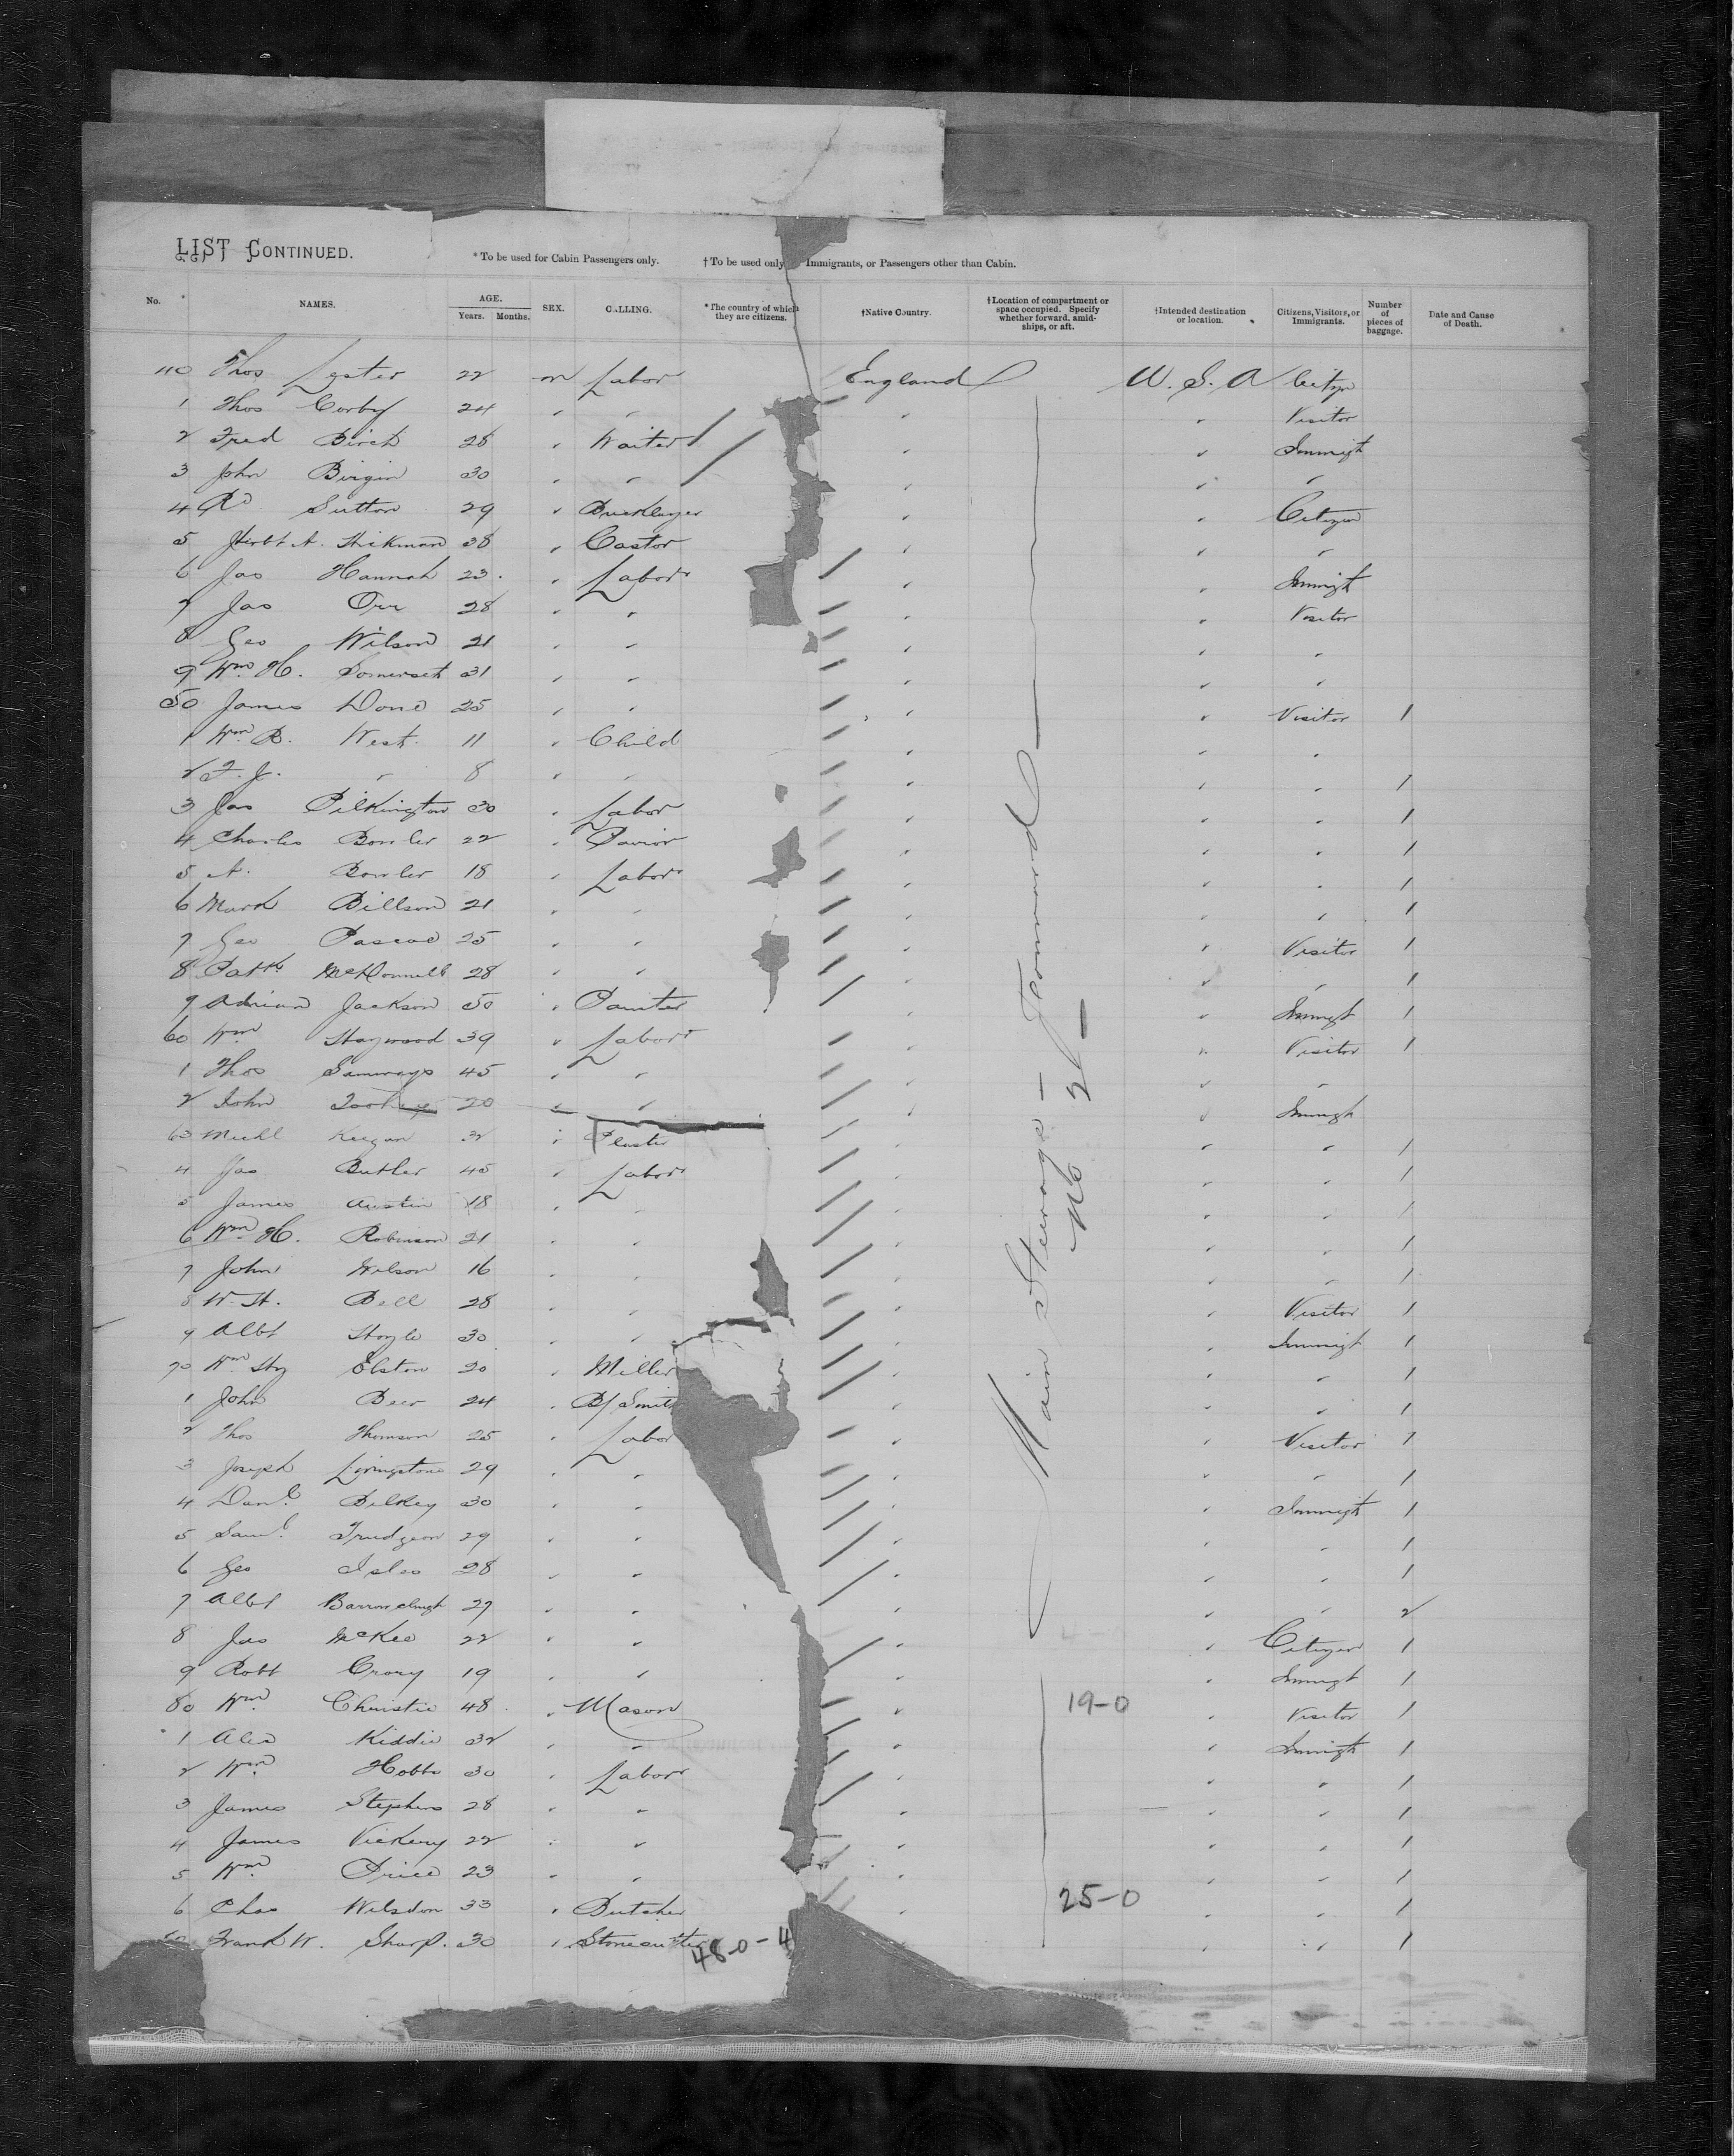 LIST CONTINUED.
* To be used for Cabin Passengers only. † To be used only Immigrants, or Passengers other than Cabin.
No. NAMES. AGE. Years. Months. SEX. CALLING. * The country of which they are citizens. † Native Country. † Location of compartment or space occupied. Specify whether forward, amidships, or aft. † Intended destination or location. Citizens, Visitors, or Immigrants. Number of pieces of baggage. Date and Cause of Death.
Thos Lester 22 m Labor England U.S.A
1 Thos Corby 24 " " " " Visitor
2 Fred Birch 28 " Waiter " " Immigt
3 John Birgin 30 " " " " "
4 Rd Sutton 29 " Bricklayer " " Citizen
5 Herbt A. Hickman 38 " Castor " " "
6 Jas Hannah 23 " Labor " " Immigt
7 Jas Orr 28 " " " " Visitor
8 Geo Wilson 21 " " " " "
9 Wm H. Somerset 31 " " " " "
50 James Done 25 " " " " Visitor 1
1 Wm R. West 11 " Child " " "
2 F. J. " 8 " " " " " 1
3 Jas Pilkington 30 " Labor " " " 1
4 Charles Bowler 22 " Pavior " " " 1
5 A. Bowler 18 " Labor " " " 1
6 Mark Billson 21 " " " " " 1
7 Geo Pascoe 25 " " " " Visitor 1
8 Patk McDonnell 28 " " " " " 1
9 Adrian Jackson 50 " Painter " " Immigt 1
60 Wm Haywood 39 " Labor " " Visitor 1
1 Thos Samways 45 " " " " "
2 John 20 " " " " Immigt
63 Michl Keegan 32 " Plaster " " " 1
4 Jas Butler 45 " Labor " " " 1
5 James Austin 18 " " " " " 1
6 Wm H. Robinson 21 " " " " " 1
7 John Wilson 16 " " " " " 1
8 W. H. Bell 28 " " " " Visitor 1
9 Albt Hoyle 30 " " " " Immigt 1
70 Wm Hy Elston 20 " Miller " " " 1
1 John Beer 24 " Bl Smit " " " 1
2 Thos Thomson 25 " Labor " " Visitor 1
3 Joseph Livingstone 29 " " " " " 1
4 Danl Bilkey 30 " " " " Immigt 1
5 Saml Trudgeon 29 " " " " " 1
6 Geo Isles 28 " " " " " 1
7 Albt Barrowclough 27 " " " " " 2
8 Jas McKee 22 " " " " Citizen 1
9 Robt Crory 19 " " " " Immigt 1
80 Wm Christie 48 " Mason " " Visitor 1
1 Alex Kiddie 32 " " " " Immigt 1
2 Wm Hobbs 30 " Labor " " " 1
3 James Stephens 28 " " " " " 1
4 James Vickery 22 " " " " " 1
5 Wm Price 23 " " " " " 1
6 Chas Wilsdon 33 " Butcher " " " 1
Frank W. Sharp. 30 " Stonecutter " " 1
Main Steerage - Forward
No 2
19-0
25-0
48-0-4